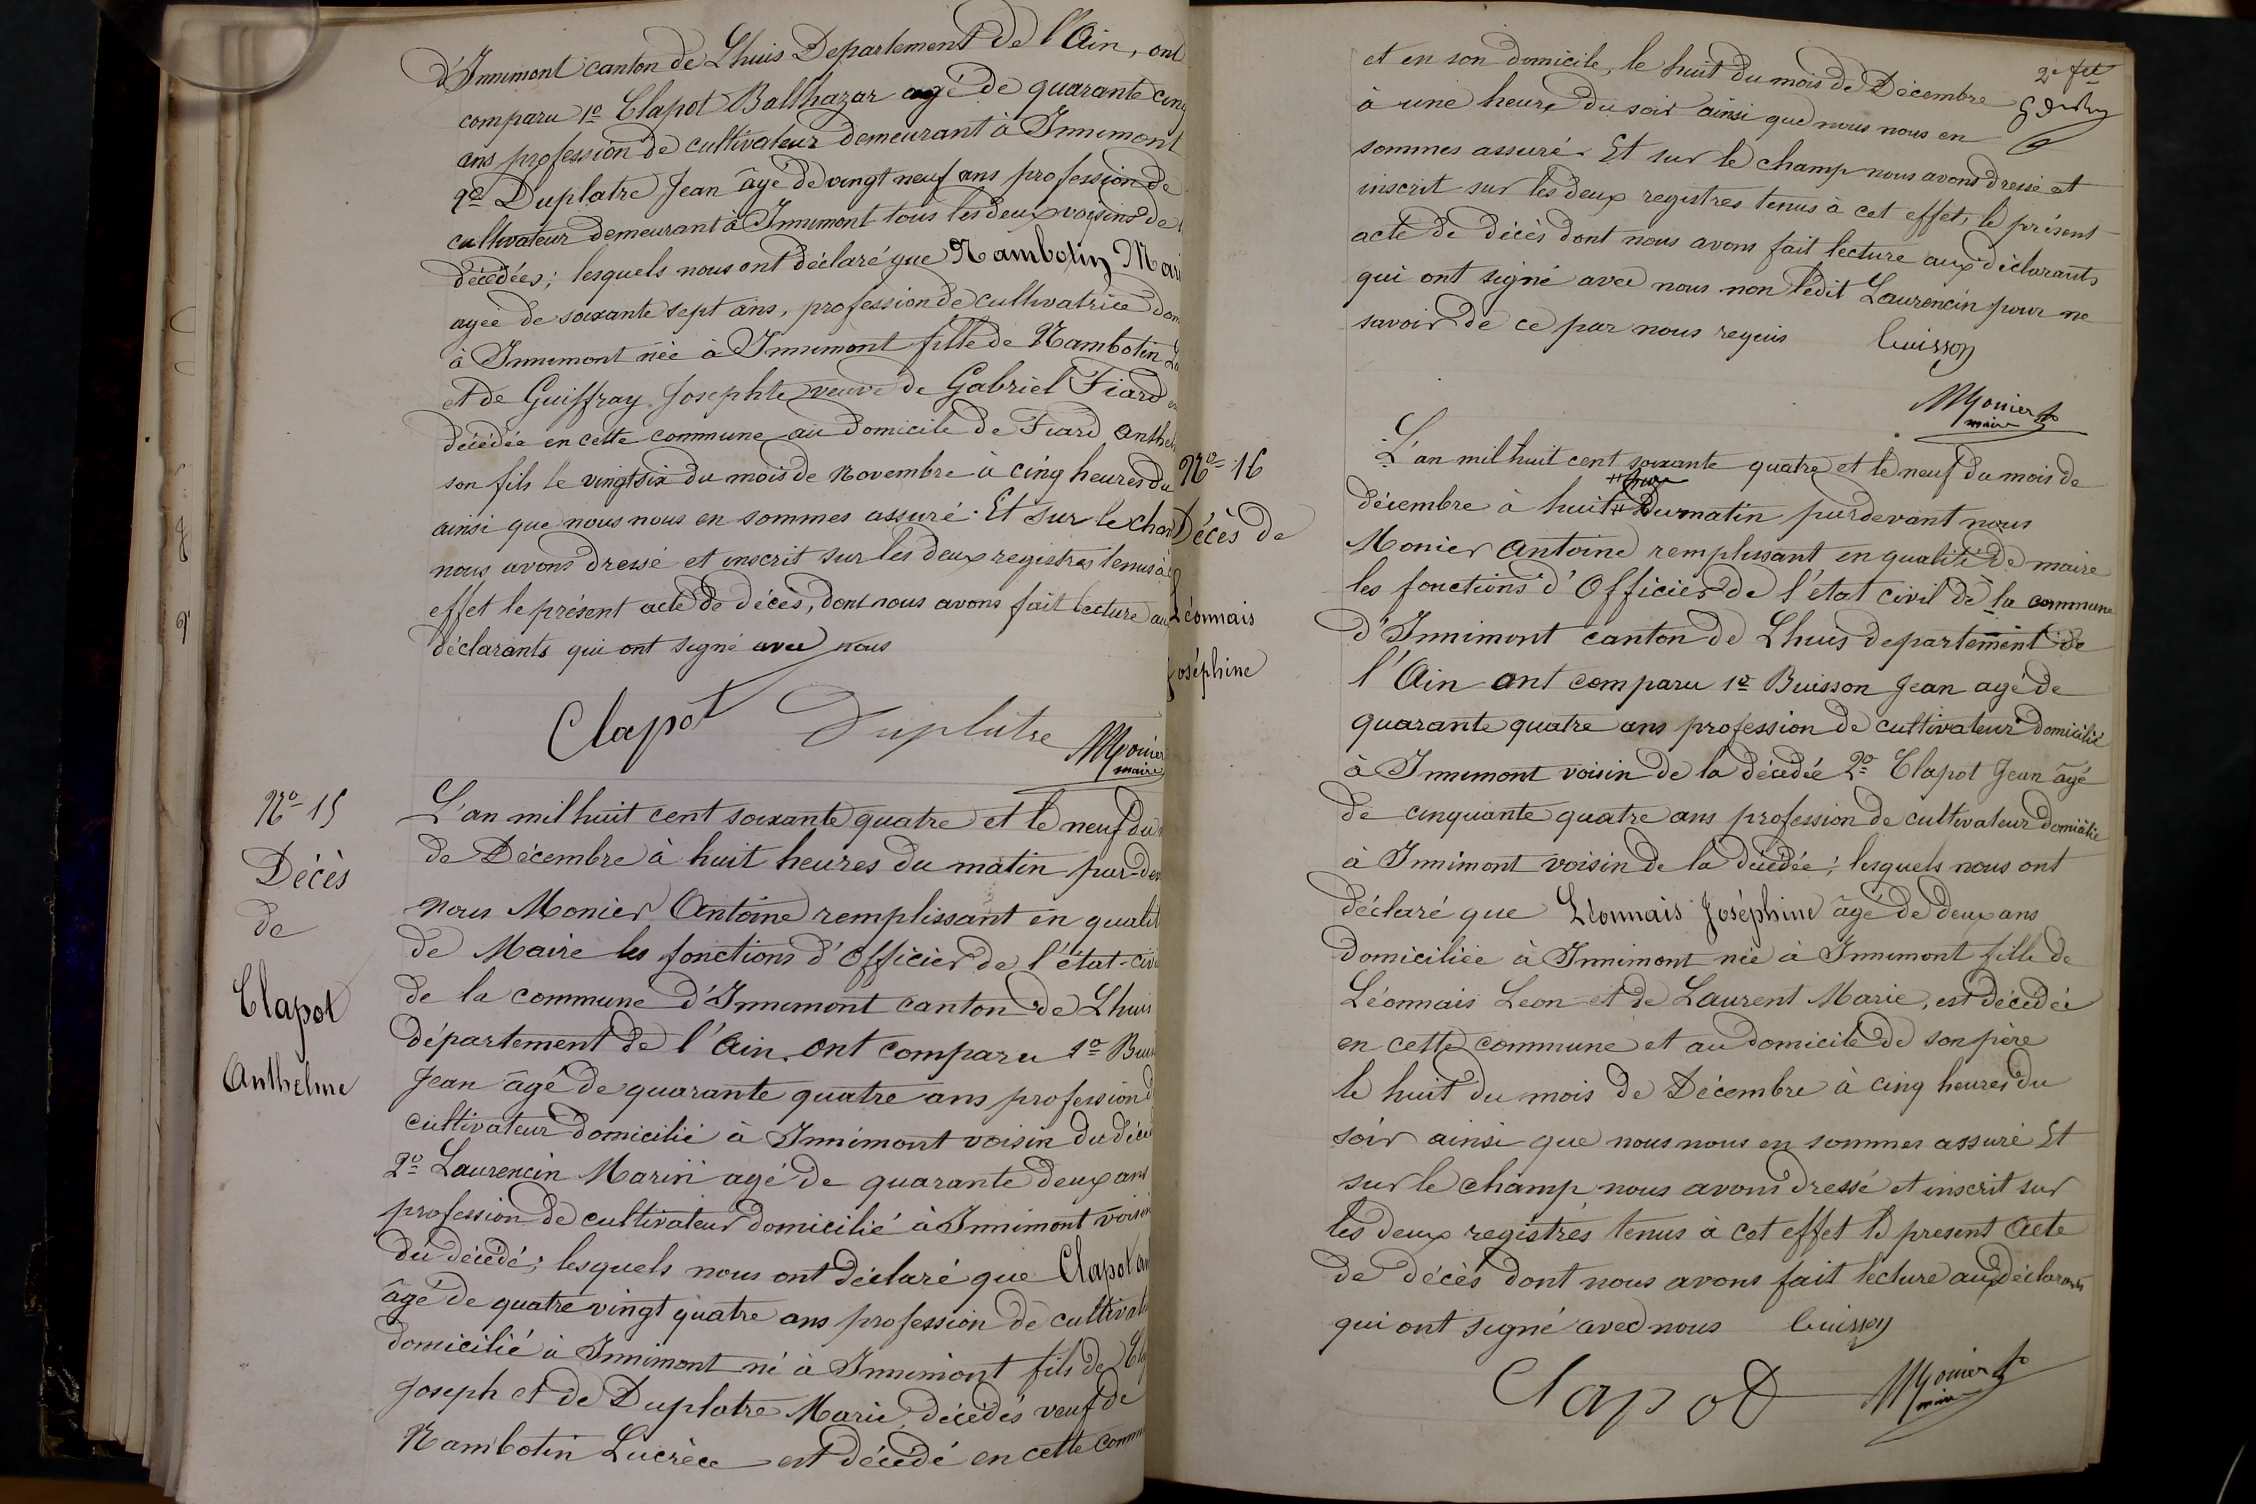 d'Innimont canton de Lhuis Departement de l'Ain, ont
comparu 1º Clapot Balthazar agé de quarante cinq
ans profession de cultivateur demeurant à Innimont
2º Duplatre Jean âgé de vingt neuf ans profession de
cultivateur demeurant à Innimont tous les deux voisins de
décédées; lesquels nous ont déclaré que Nambotin Mari
agée de soixante sept ans, profession de cultivatrice dom
à Innimont née à Innimont fille de Nambotin
et de Guiffray Josephte veuve de Gabriel Fiard
décédée en cette commune au domicile de Fiard Anthel
son fils le vingt six du mois de novembre à cinq heures du
ainsi que nous nous en sommes assuré. Et sur le cham
nous avons dressé et inscrit sur les deux registres tenus à
effet le présent acte de décès, dont nous avons fait lecture aux
déclarants qui ont signé avec nous
Clapot Duplatre Monier
maire
Nº 15
Décès
de
Clapot
Anthelme
L'an mil huit cent soixante quatre et le neuf du
de Décembre à huit heures du matin par-dev
nous Monier Antoine remplissant en qualit
de Maire les fonctions d'Officier de l'état-civi
de la commune d'Innimont canton de Lhuis
département de l'Ain, ont comparu 1º Buis
Jean âgé de quarante quatre ans profession d
cultivateur domicilié à Innimont voisin du décé
2º Laurencin Marin agé de quarante deux ans
profession de cultivateur domicilié à Innimont voisin
du décédé; lesquels nous ont déclaré que Clapot an
âgé de quatre vingt quatre ans profession de cultivate
domicilié à Innimont né à Innimont fils de Cla
Joseph et de Duplatre Marie, décédés veuf de
Nambotin Lucrèce est décédé en cette comm
et en son domicile, le huit du mois de Décembre
à une heure du soir ainsi que nous nous en
sommes assuré. Et sur le champ nous avons dressé et
inscrit sur les deux registres tenus à cet effet, le présent
acte de décès dont nous avons fait lecture aux déclarants
qui ont signé avec nous non ledit Laurencin pour ne
savoir de ce par nous requis buisson
Monier
maire
Nº 16
Décès de
Léonnais
Joséphine
L'an mil huit cent soixante quatre et le neuf du mois de
heure
décembre à huit du matin pardevant nous
Monier Antoine remplissant en qualité de maire
les fonctions d'Officier de l'état civil de la commune
d'Innimont canton de Lhuis departement de
l'Ain ont comparu 1º Buisson Jean agé de
quarante quatre ans profession de cultivateur domicilié
à Innimont voisin de la décédée 2º Clapot Jean âgé
de cinquante quatre ans profession de cultivateur domicilié
à Innimont voisin de la décédée; lesquels nous ont
déclaré que Léonnais Joséphine âgé de deux ans
domiciliée à Innimont née à Innimont fille de
Léonnais Leon et de Laurent Marie, est décédée
en cette commune et au domicile de son père
le huit du mois de Décembre à cinq heures du
soir ainsi que nous nous en sommes assuré Et
sur le champ nous avons dressé et inscrit sur
les deux registres tenus à cet effet le present Acte
de décès dont nous avons fait lecture aux déclarants
qui ont signé avec nous buisson
Clapot Monier
maire